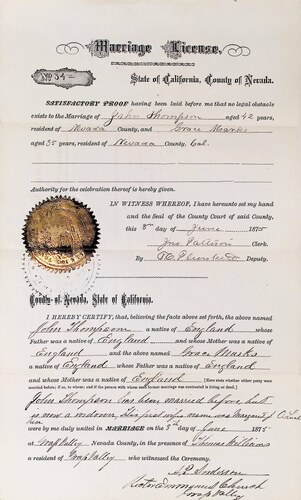 Marriage License,
No 34
State of California, County of Nevada.
SATISFACTORY PROOF having been laid before me that no legal obstacle
exists to the Marriage of John Thompson aged 42 years,
resident of Nevada County, and Grace Marks
aged 35 years, resident of Nevada County, Cal.
Authority for the celebration thereof is hereby given.
IN WITNESS WHEREOF, I have hereunto set my hand
and the Seal of the County Court of said County,
this 3rd day of June 1875
Clerk.
By Deputy.
County of Nevada, State of California.
I HEREBY CERTIFY, that believing the facts above set forth, the above named
John Thompson a native of England whose
Father was a native of England and whose Mother was a native of
England and the above named Grace Marks
a native of England whose Father was a native of England
and whose Mother was a native of England
John Thompson has been married before, but
is now a widower. His first wife's name was
were by me duly united in MARRIAGE on the 5th day of June 1875
at Grass Valley Nevada County, in the presence of Thomas Williams
a resident of Grass Valley who witnessed the Ceremony.
Anderson
Rector Emmanuel Church
Grass Valley